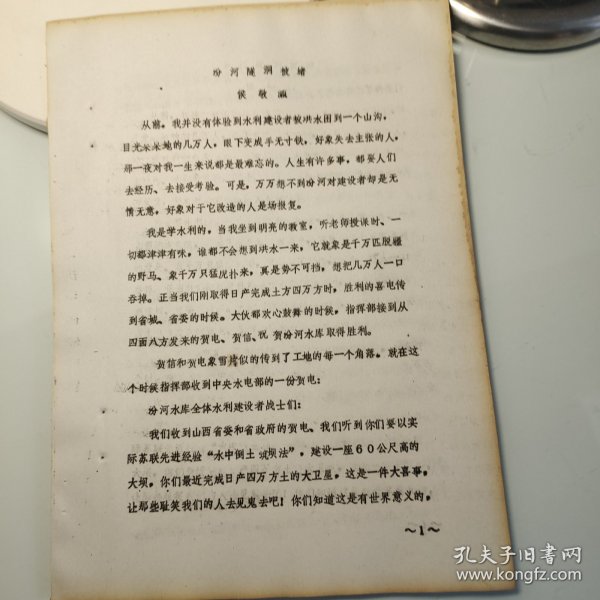 汾河隧洞被堵
侯敬
从前,我并没有体验到水利建设者被洪水困到一个山沟,
目光呆呆地的几万人,眼下变成手无寸铁,好象失去主张的人,
那一夜对我一生来说都是最难忘的。人生有许多事,都要人们
去经历、去接受考验。可是,万万想不到汾河对建设者却是无
情无意,好象对于它改造的人是场报复。
我是学水利的,当我坐到明亮的教室,听老师授课时、一
切都津津有味,谁都不会想到洪水一来,它就象是千万匹脱疆
的野马、象千万只猛虎扑来,真是势不可挡,想把几万人一口
吞掉。正当我们刚取得日产完成土方四万方时,胜利的喜电传
到省城、省委的时候。大伙都欢心鼓舞的时候,指挥部接到从
四面八方发来的贺电、贺信、祝贺汾河水库取得胜利。
贺信和贺电象雪片似的传到了工地的每一个角落。就在这
个时候指挥部收到中央水电部的一份贺电:
汾河水库全体水利建设者战士们:
我们收到山西省委和省政府的贺电、我们听到你们要以实
际苏联先进经验“水中倒土筑坝法”,建设一座60公尺高的
大坝。你们最近完成日产四万方土的大卫星。这是一件大喜事。
让那些耻笑我们的人去见鬼去吧!你们知道这是有世界意义的。
~1~
孔夫子旧书网
www.kongfz.com